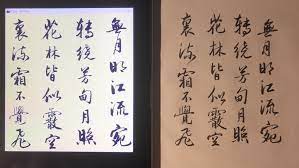 無月明江流宛
轉繞芳甸月照
花林皆似霰空
裏流霜不覺飛
無月明江流宛
轉繞芳甸月照
花林皆似霰空
裏流霜不覺飛